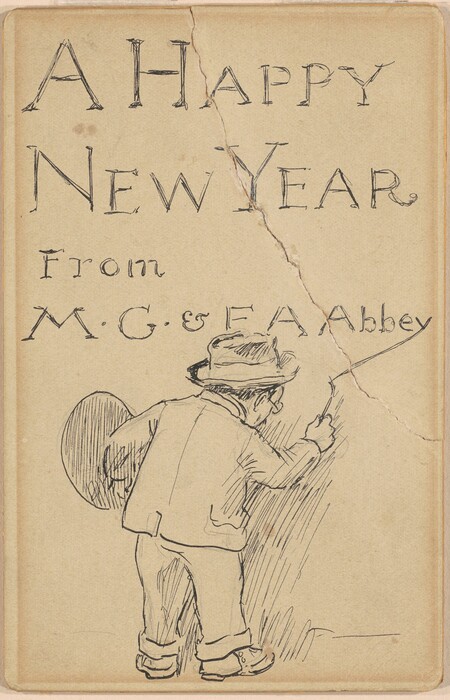 A HAPPY
NEW YEAR
From
M. G. & E A Abbey